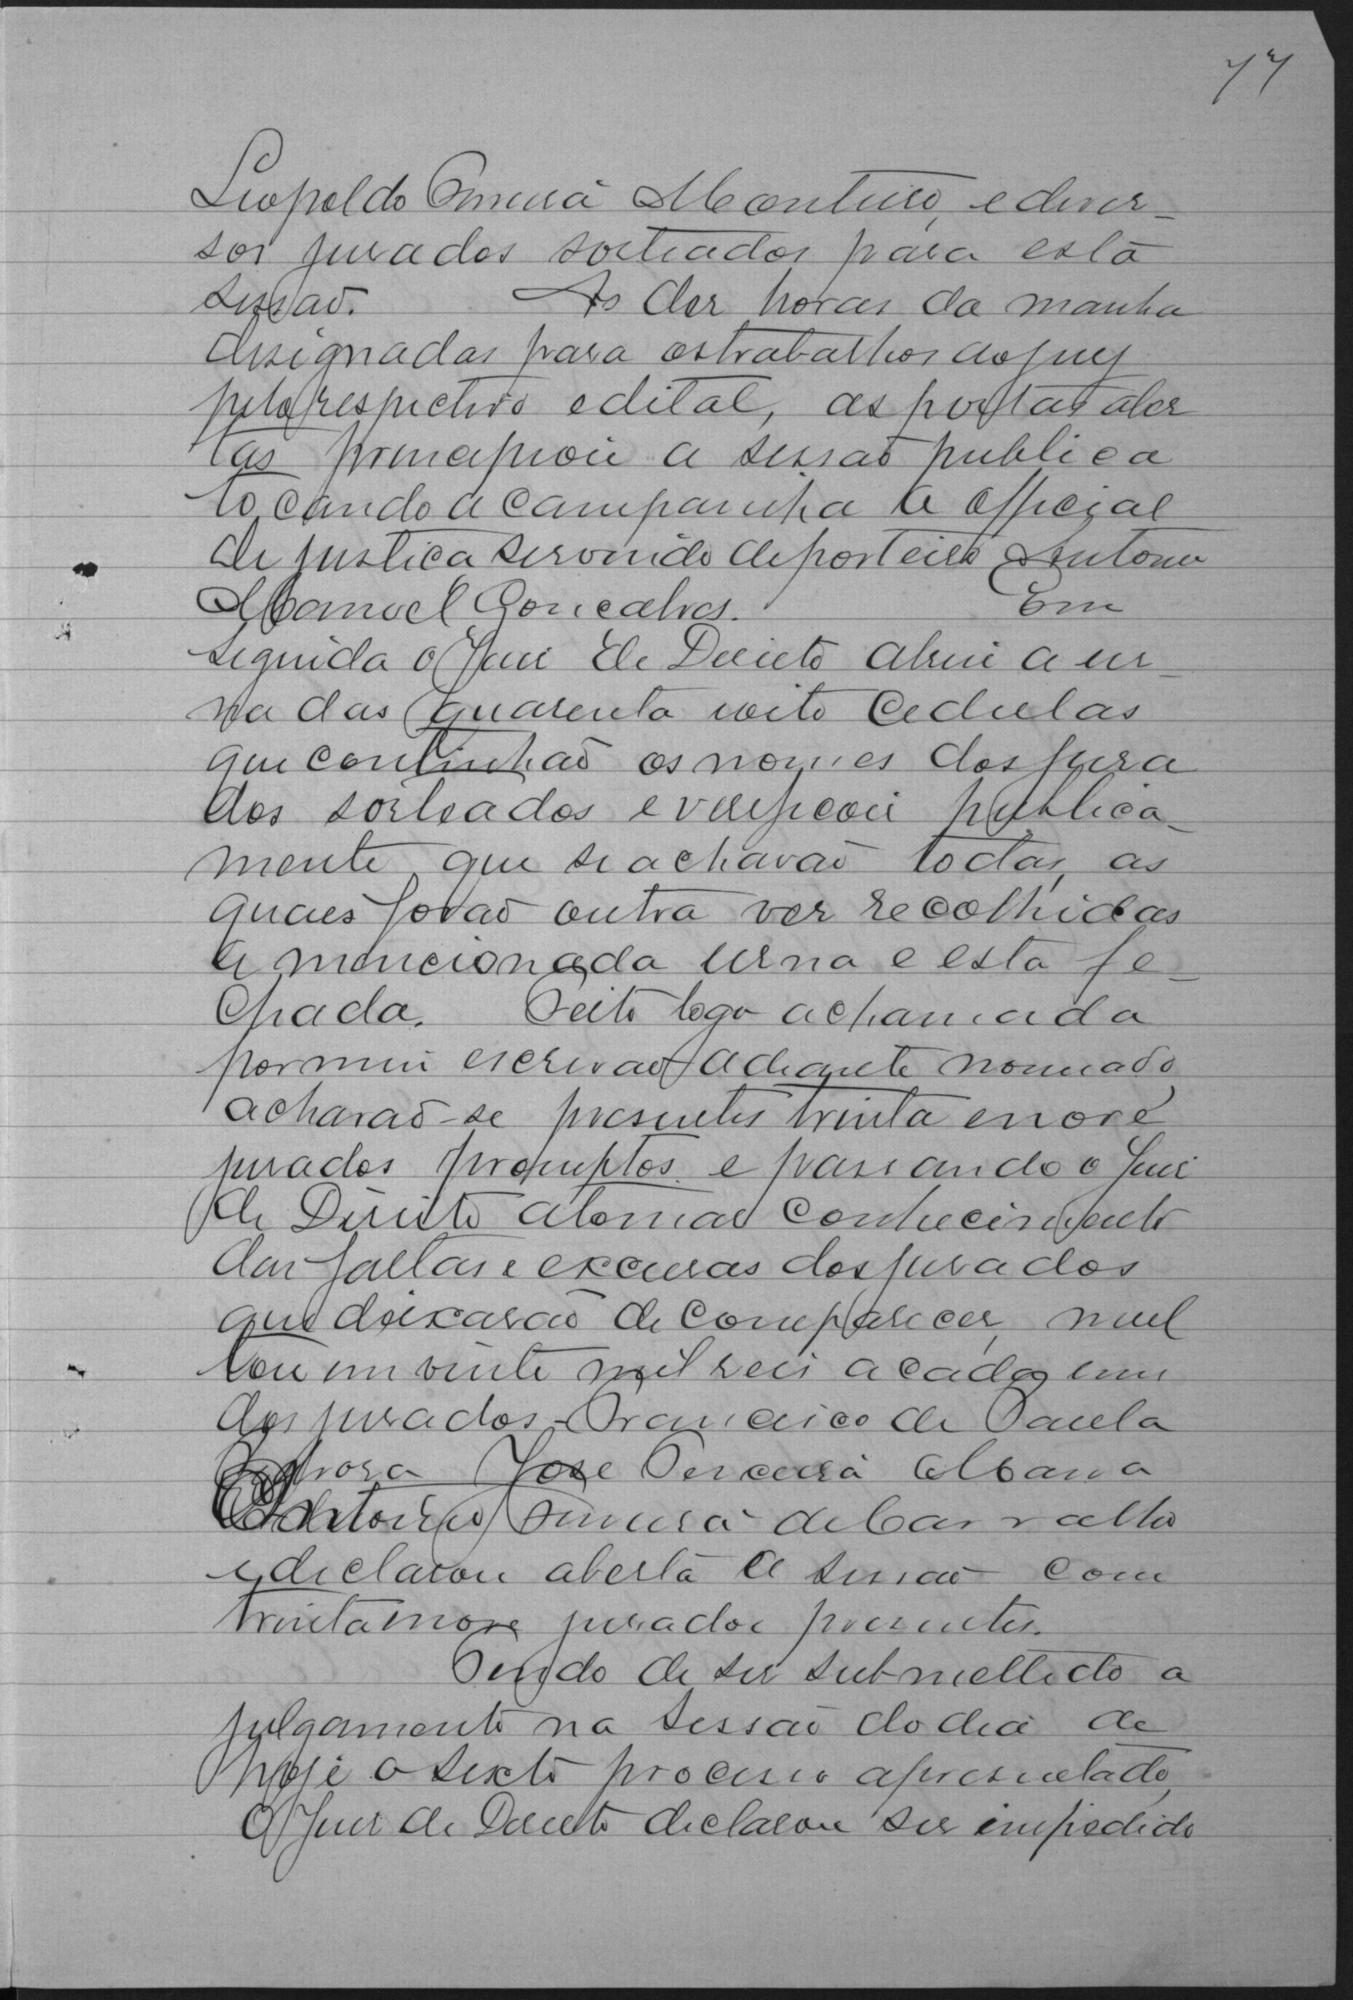 77
Leopoldo Pereira Monteiro, e diver-
sos jurados sorteados para esta
sessão. As dez horas da manha
designadas para os trabalhos do jury
pelo respectivo edital, as portas aber
tas principiou a sessão publica
tocando a campainha o official
de justiça servindo de porteiro Antonio
Manoel Gonçalves. Em
seguida o Juiz de Direito abrio a ur-
na das quarenta e oito cedulas
que continhaõ os nomes dos jura
dos sorteados e verificou publica-
mente que se achavaõ todas, as
quaes foraõ outra vez recolhidas
a mencionada urna e esta fe-
chada. Feito logo a chamada
por mim escrivaõ adiante nomeado,
acharaõ-se presentes trinta e nove
jurados promptos e passando o Juiz
de Direito a tomar conhecimento
das faltas e excusas dos jurados
que deixaraõ de comparecer, mul
tou em vinte mil reis a cada um
dos jurados Francisco de Paula
José Pereira
Antonio Pereira de Carvalho
e declarou aberta a sessaõ com
trinta nove jurados presentes.
Tendo de ser submettido a
julgamento na sessaõ do dia de
hoje o sexto processo apresentado,
O Juiz de Direito declarou ser impedido